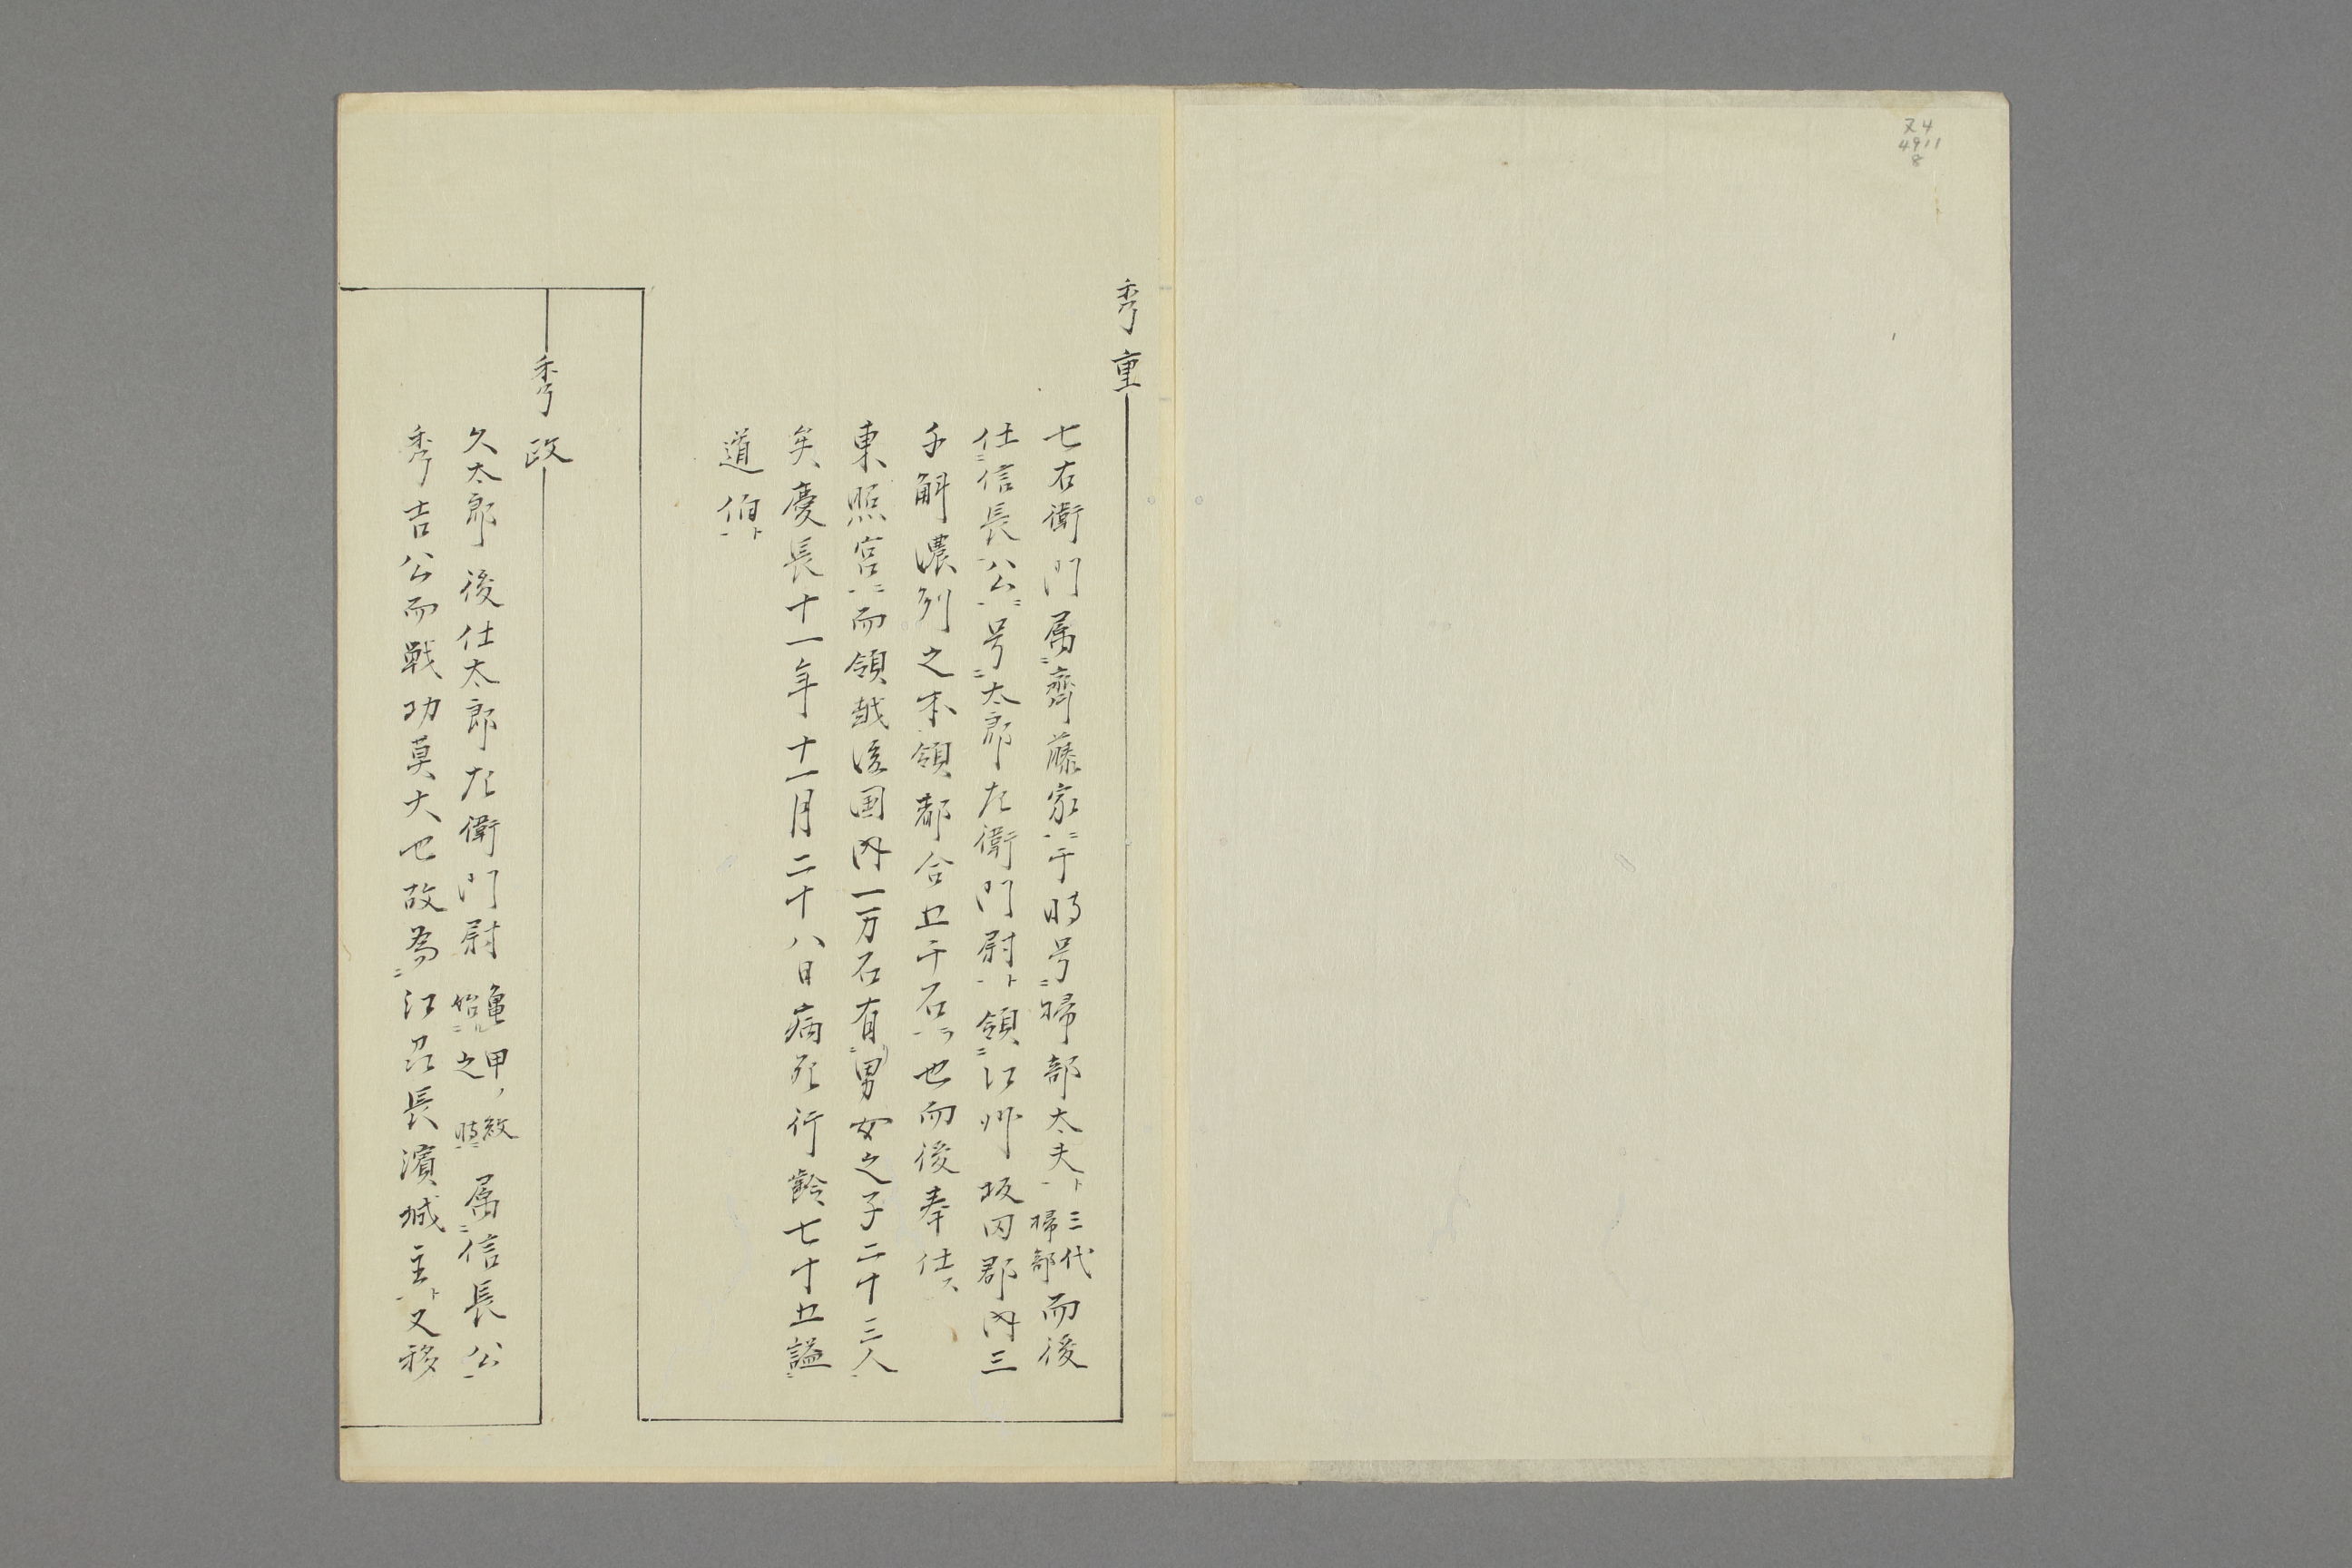 又4
4911
8
秀重
七右衛門属齊藤家ニ于時号掃部太夫ト三代掃部而後
仕信長公ニ号太郎左衛門尉ト領江州坂田郡内三
千斛濃列之本領都合五千石ヲ也而後奉仕ス
東照宮ニ而領越後国内一万石有男女之子二十三人
矣慶長十一年十一月二十八日病死行齢七十五謚
道伯ト
秀政
久太郎後仕太郎左衛門尉亀甲ノ紋始ル之時ニ属信長公
秀吉公而戦功莫大也故為江刕長濱城主ト又移